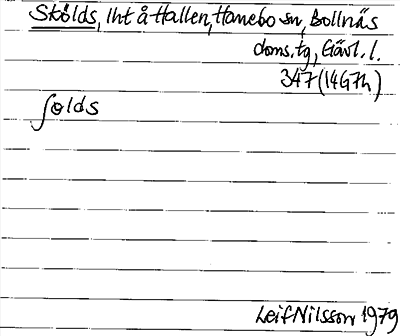 Skölds, lht å Hallen, Hanebo sn, Bollnäs
doms.tg, Gävl.l.
347 (14G7h)
ʃɵlds
Leif Nilsson 1979